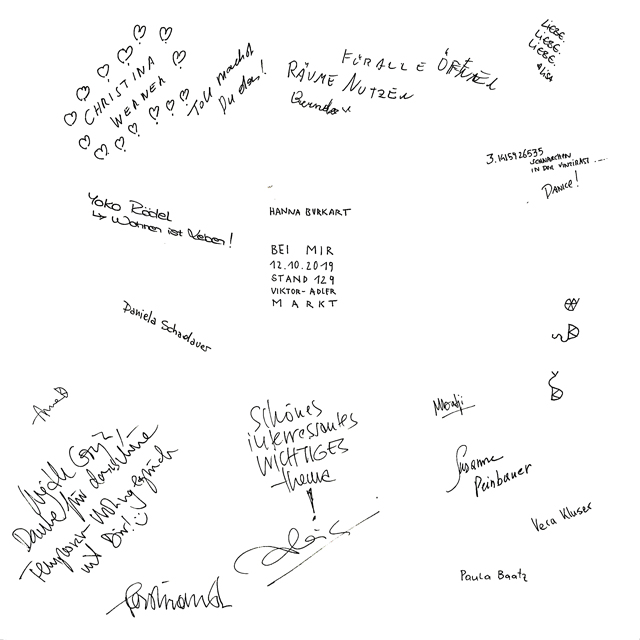 CHRISTINA
WERNER
Toll machst
Du das!
FÜR ALLE ÖFFNEN
RÄUME NUTZEN
LIEBE.
LIEBE.
LIEBE.
3.1415926535
SCHNARCHEN
IN DER
DANKE!
Yoko Rödel
↳ Wohnen ist Leben!
HANNA BURKART
BEI MIR
12.10.2019
STAND 129
VIKTOR-ADLER
MARKT
Daniela Schadauer
Schönes
interessantes
WICHTIGES
thema
!
Danke für
mit Dir!
Susanne
Peinbauer
Vera Kluser
Paula Baatz
Ferdinand